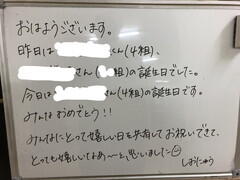 おはようございます。
昨日は くん(4組)、
さん( 組)の誕生日でした。
今日は さん(4組)の誕生日です。
みんなおめでとう!!
みんなにとって嬉しい日を共有してお祝いできて、
とっても嬉しいなあ〜と、思いました
しおにゅう